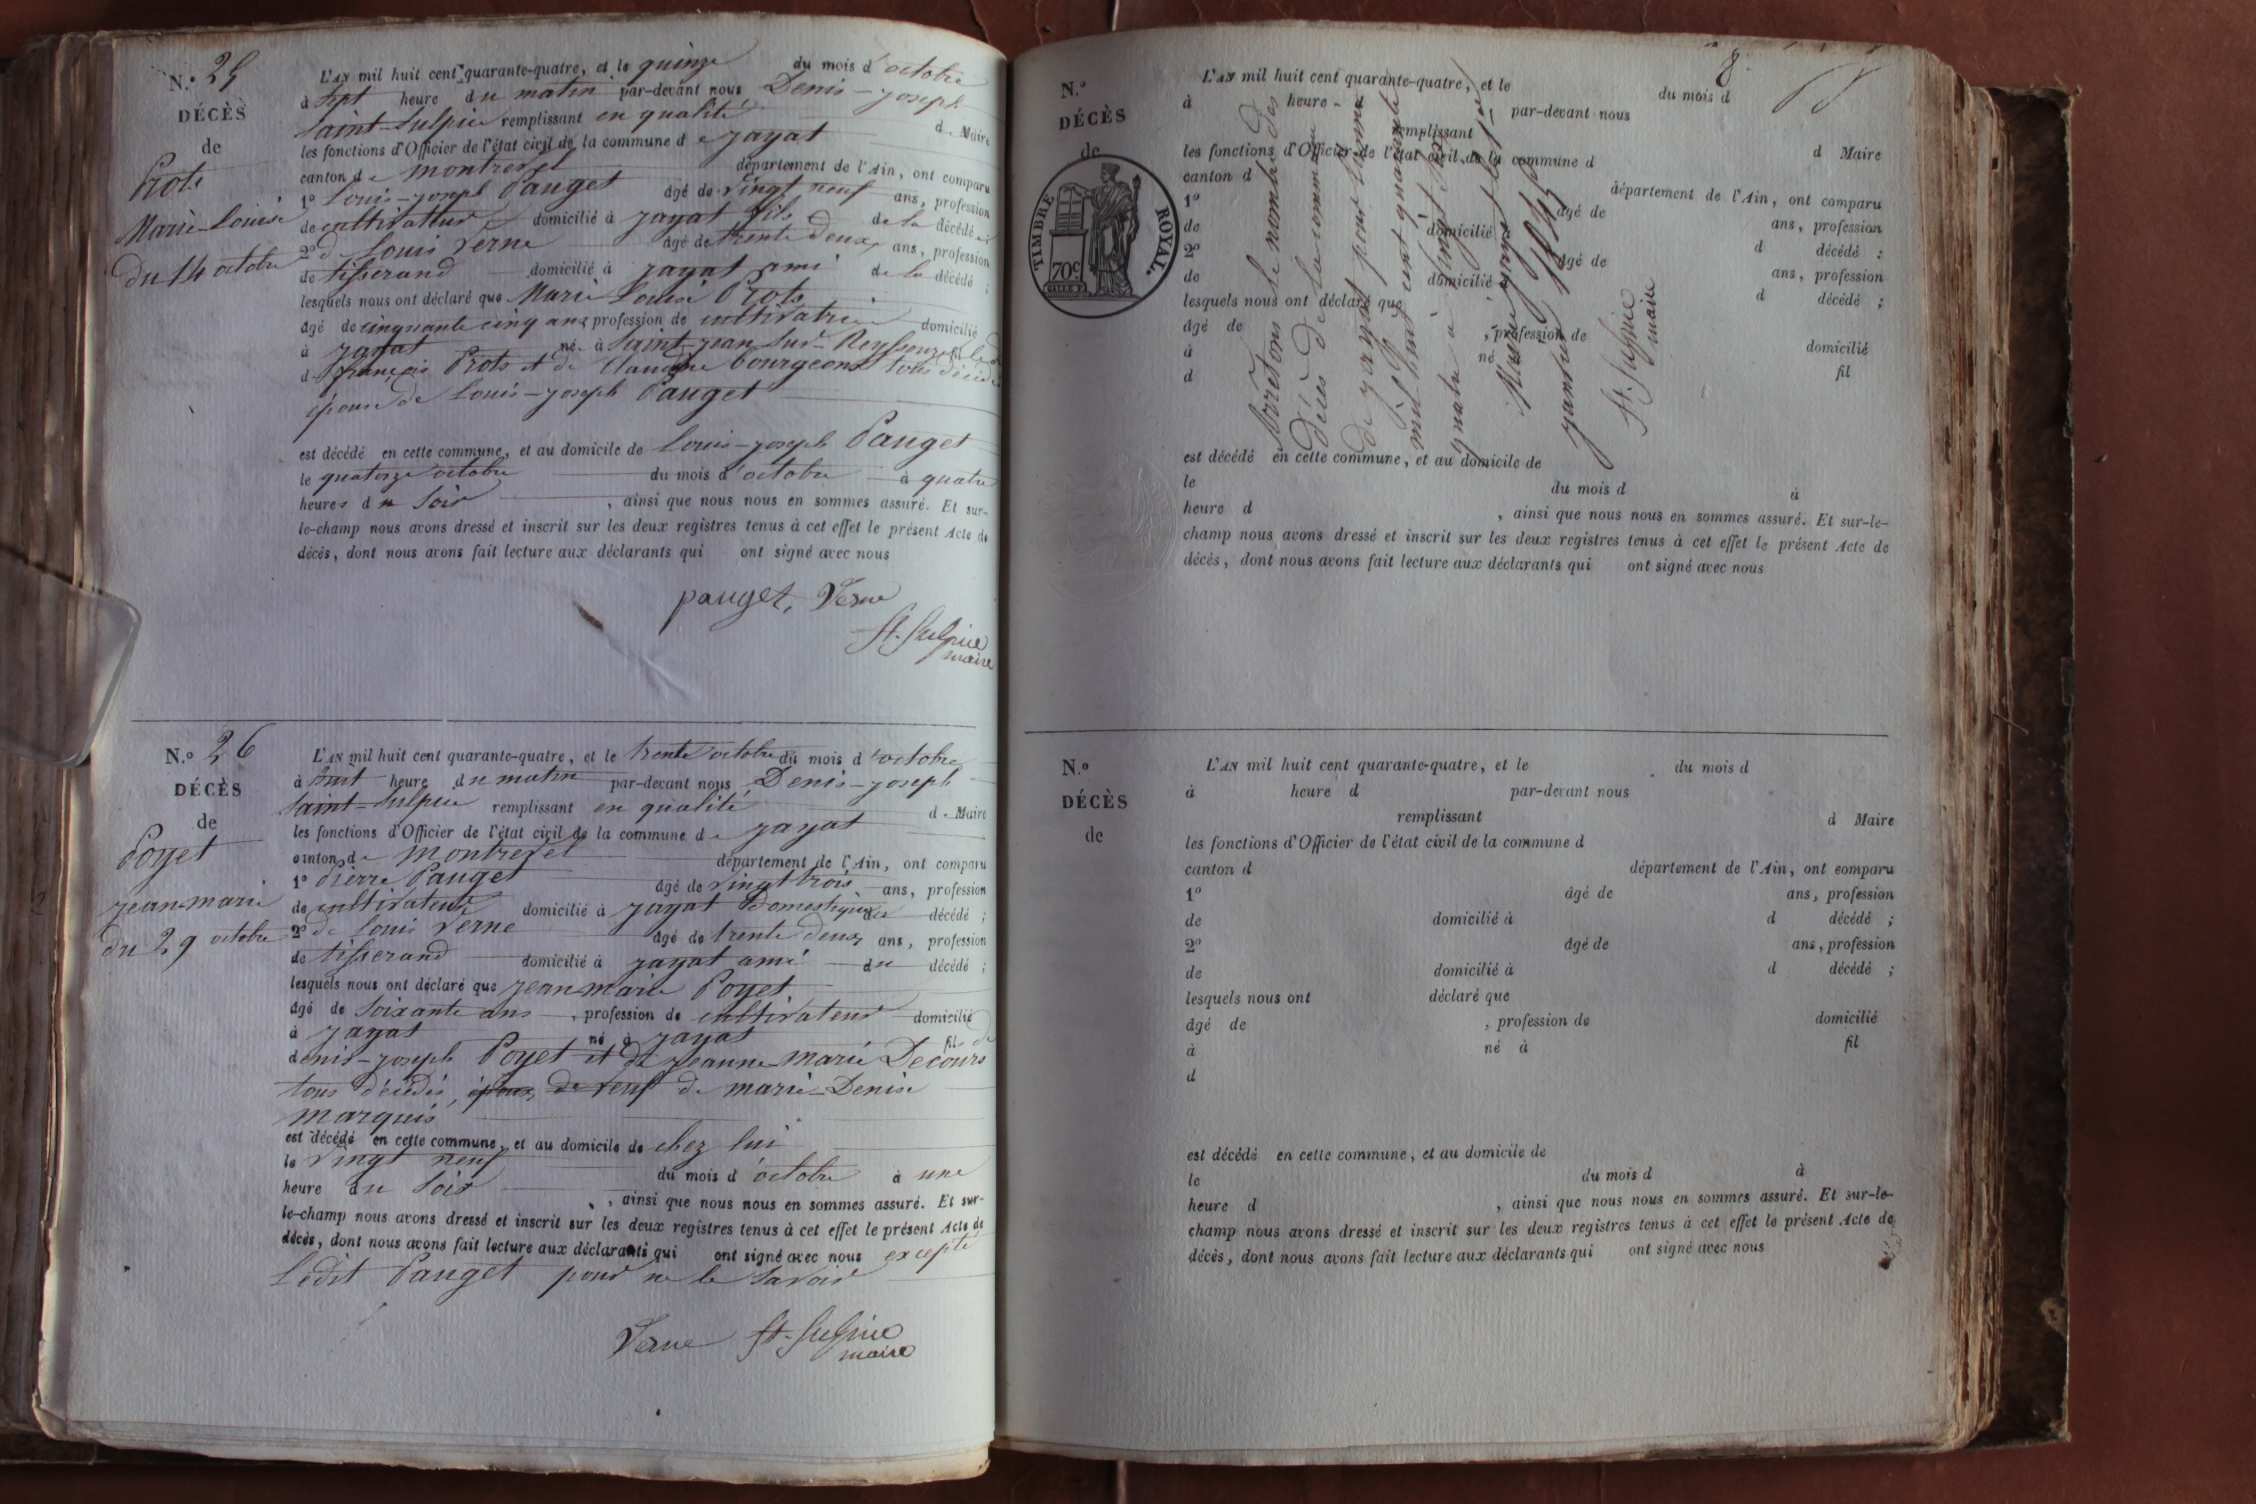 N.° 25
DÉCÈS
de
Prots
Marie-Louise
du 14 octobre
L'AN mil huit cent quarante-quatre, et le quinze du mois d'octobre
à sept heure du matin par-devant nous Denis-joseph
Saint-Sulpice remplissant en qualité de Maire
les fonctions d'Officier de l'état civil de la commune de jayat
canton de montrevel département de l'Ain, ont comparu
1° Louis-joseph Pauget âgé de vingt neuf ans, profession
de cultivateur domicilié à jayat fils de la décédée
2° d Louis Verne âgé de trente deux ans, profession
de tisserand domicilié à jayat ami de la décédé ;
lesquels nous ont déclaré que Marie Louise Prots
âgé de cinquante cinq ans profession de cultivatrice domicilié
à jayat né à Saint-jean-Sur-Reyssouze
d françois Prots et de Claudine Bourgeons tous décédés
épouse de Louis-joseph Pauget
est décédé en cette commune, et au domicile de Louis-joseph Pauget
le quatorze octobre du mois d'octobre à quatre
heures du Soir , ainsi que nous nous en sommes assuré. Et sur-
le-champ nous avons dressé et inscrit sur les deux registres tenus à cet effet le présent Acte de
décès, dont nous avons fait lecture aux déclarants qui ont signé avec nous
pauget, Verne
St-Sulpice
maire
N.° 26
DÉCÈS
de
Poyet
jean-marie
du 29 octobre
L'AN mil huit cent quarante-quatre, et le trente octobre du mois d'octobre
à huit heure du matin par-devant nous Denis-joseph
Saint-Sulpice remplissant en qualité de Maire
les fonctions d'Officier de l'état civil de la commune de jayat
canton de montrevel département de l'Ain, ont comparu
1° pierre Pauget âgé de vingt trois ans, profession
de cultivateur domicilié à jayat Domestique du décédé ;
2° de Louis Verne âgé de trente deux ans, profession
de tisserand domicilié à jayat ami du décédé ;
lesquels nous ont déclaré que jean marie Poyet
âgé de Soixante ans , profession de cultivateur domicilié
à jayat né à jayat fils de
denis-joseph Poyet et de jeanne marie Decours
tous décédés, époux de veuf de marie-Denise
marquis
est décédé en cette commune, et au domicile de chez lui
le vingt neuf du mois d'octobre à une
heure du Soir , ainsi que nous nous en sommes assuré. Et sur-
le-champ nous avons dressé et inscrit sur les deux registres tenus à cet effet le présent Acte de
décès, dont nous avons fait lecture aux déclarants qui ont signé avec nous excepté
Ledit Pauget pour ne le Savoir
Verne St-Sulpice
maire
8
N.°
DÉCÈS
de
TIMBRE ROYAL.
70c
L'AN mil huit cent quarante-quatre, et le du mois d
à heure par-devant nous
remplissant d Maire
les fonctions d'Officier de l'état civil de la commune d
canton d département de l'Ain, ont comparu
1° âgé de ans, profession
de domicilié d décédé ;
2° âgé de ans, profession
de domicilié d décédé ;
lesquels nous ont déclaré que
âgé de , profession de domicilié
à né fil
d
est décédé en cette commune, et au domicile de
le du mois d à
heure d , ainsi que nous nous en sommes assuré. Et sur-le-
champ nous avons dressé et inscrit sur les deux registres tenus à cet effet le présent Acte de
décès, dont nous avons fait lecture aux déclarants qui ont signé avec nous
Arrêtons le nombre des
décès de la commune
de jayat pour l'année
mil huit cent quarante
quatre à vingt Six
Mairie jayat le 1er
janvier 1845
St-Sulpice
maire
N.°
DÉCÈS
de
L'AN mil huit cent quarante-quatre, et le du mois d
à heure d par-devant nous
remplissant d Maire
les fonctions d'Officier de l'état civil de la commune d
canton d département de l'Ain, ont comparu
1° âgé de ans, profession
de domicilié à d décédé ;
2° âgé de ans, profession
de domicilié à d décédé ;
lesquels nous ont déclaré que
âgé de , profession de domicilié
à né à fil
d
est décédé en cette commune, et au domicile de
le du mois d à
heure d , ainsi que nous nous en sommes assuré. Et sur-le-
champ nous avons dressé et inscrit sur les deux registres tenus à cet effet le présent Acte de
décès, dont nous avons fait lecture aux déclarants qui ont signé avec nous